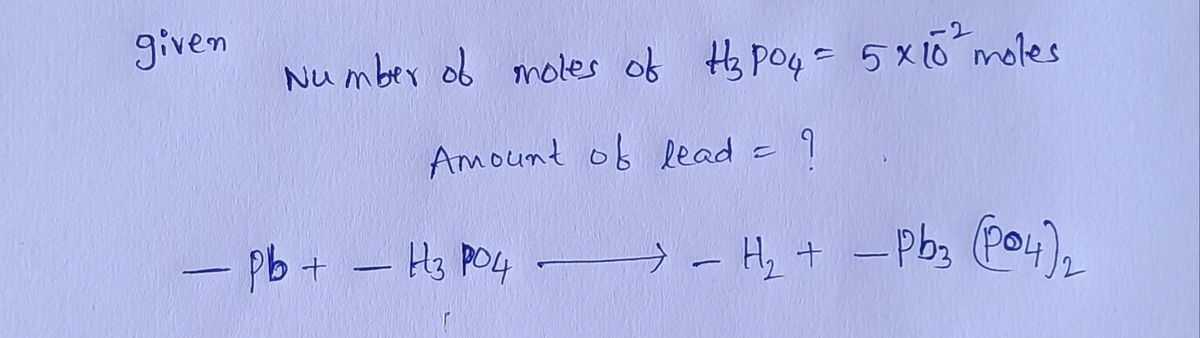 given
Number of moles of H₃PO₄ = 5 × 10⁻² moles
Amount of lead = ?
— Pb + — H₃PO₄ ⟶ — H₂ + — Pb₃(PO₄)₂